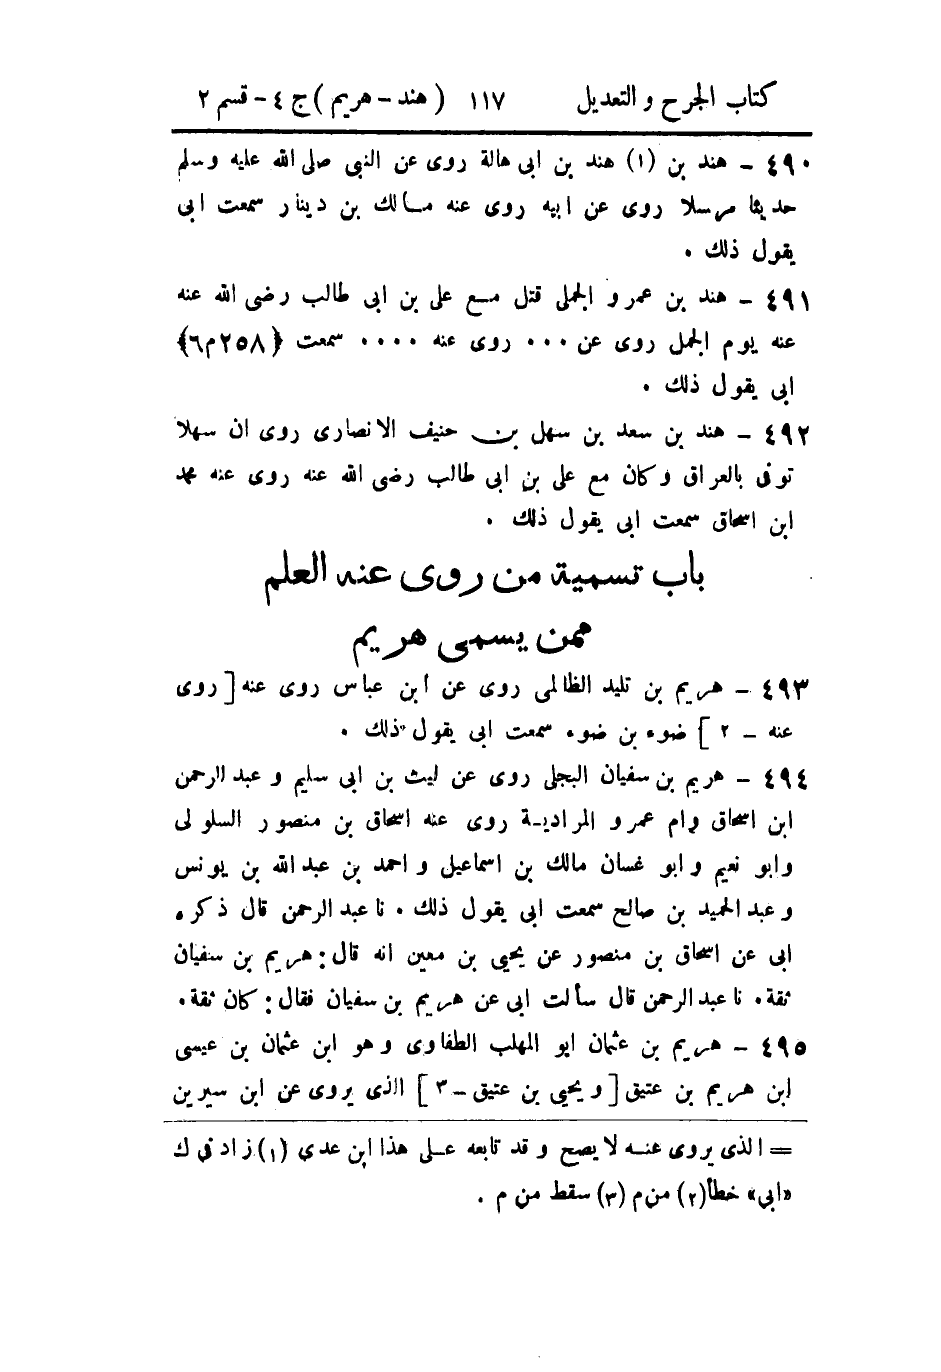 كتاب الجرح و التعديل ١١٧ (هند - هريم) ج ٤ - قسم ٢
٤٩٠ - هند بن (١) هند بن ابى هالة روى عن النبى صلى الله عليه وسلم
حديثا مرسلا روى عن ابيه روى عنه مالك بن دينار سمعت ابى
يقول ذلك .
٤٩١ - هند بن عمرو الجملى قتل مع على بن ابى طالب رضى الله عنه
عنه يوم الجمل روى عن ... روى عنه .... سمعت {٢٥٨م٦}
ابى يقول ذلك .
٤٩٢ - هند بن سعد بن سهل بن حنيف الانصارى روى ان سهلا
توفى بالعراق وكان مع على بن ابى طالب رضى الله عنه روى عنه محمد
ابن اسحاق سمعت ابى يقول ذلك .
باب تسمية من روى عنه العلم
ممن يسمى هريم
٤٩٣ - هريم بن تليد الظالمى روى عن ابن عباس روى عنه [روى
عنه - ٢] ضوء بن ضوء سمعت ابى يقول ذلك .
٤٩٤ - هريم بن سفيان البجلى روى عن ليث بن ابى سليم و عبد الرحمن
ابن اسحاق وام عمرو المرادية روى عنه اسحاق بن منصور السلولى
وابو نعيم و ابو غسان مالك بن اسماعيل و احمد بن عبد الله بن يونس
و عبد الحميد بن صالح سمعت ابى يقول ذلك . نا عبد الرحمن قال ذكره
ابى عن اسحاق بن منصور عن يحيى بن معين انه قال: هريم بن سفيان
ثقة. نا عبد الرحمن قال سألت ابى عن هريم بن سفيان فقال: كان ثقة.
٤٩٥ - هريم بن عثمان ابو المهلب الطفاوى و هو ابن عثمان بن عيسى
ابن هريم بن عتيق [و يحيى بن عتيق - ٣] الذى يروى عن ابن سيرين
= الذى يروى عنه لا يصح و قد تابعه على هذا ابن عدي (١) زاد في ك
«ابي» خطأ (٢) من م (٣) سقط من م .